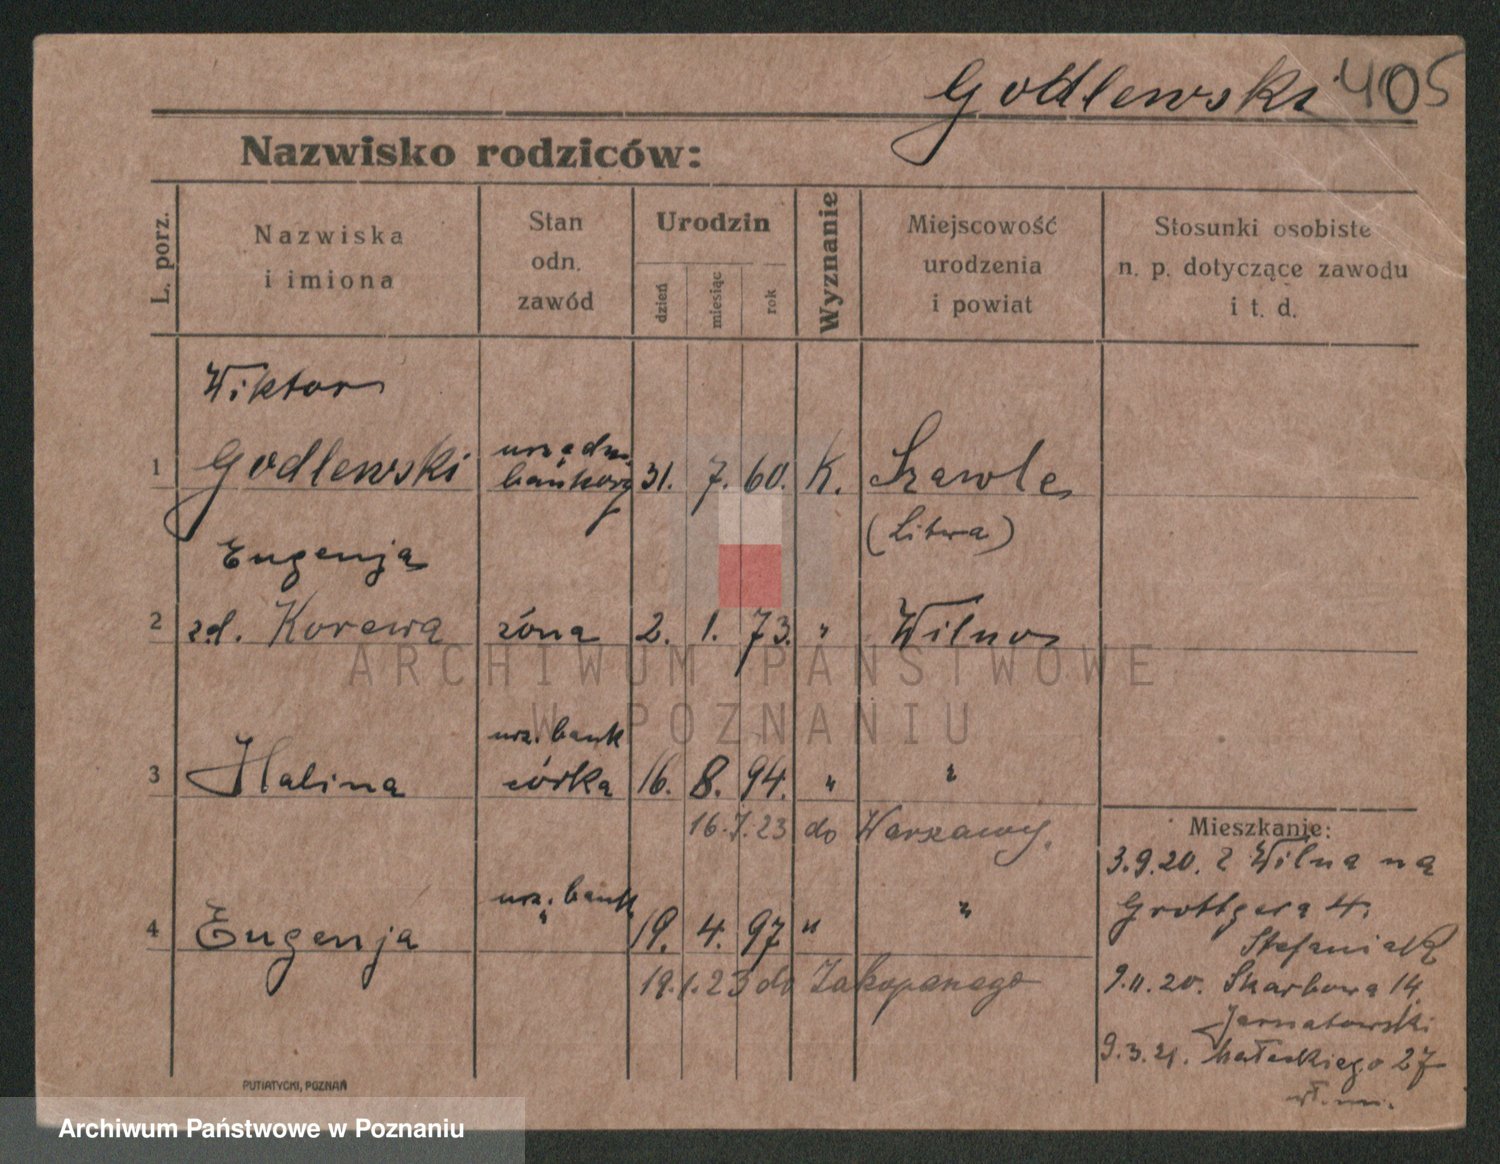 Godlewski 405
Nazwisko rodziców:
L. porz.
Nazwiska
i imiona
Stan
odn.
zawód
Urodzin
dzień
miesiąc
rok
Wyznanie
Miejscowość
urodzenia
i powiat
Stosunki osobiste
n. p. dotyczące zawodu
i t. d.
Wiktor
urzędn.
1 Godlewski bankowy 31. 7. 60. K. Szawle
(Litwa)
Eugenja
2 zd. Korewa żona 2. 1. 73. " Wilno
ARCHIWUM PAŃSTWOWE
W POZNANIU
urz. bank
3 Halina córka 16. 8. 94. " "
16.7.23 do Warszawy.
urz. bank.
4 Eugenja " 19. 4. 97 " "
19.1.23 do Zakopanego
Mieszkanie:
3.9.20. z Wilna na
Grottgera 4.
Stefaniak
9.11.20. Skarbowa 14
Jarnatowski
9.3.21. Małeckiego 27
wł. m.
PUTIATYCKI, POZNAŃ
Archiwum Państwowe w Poznaniu